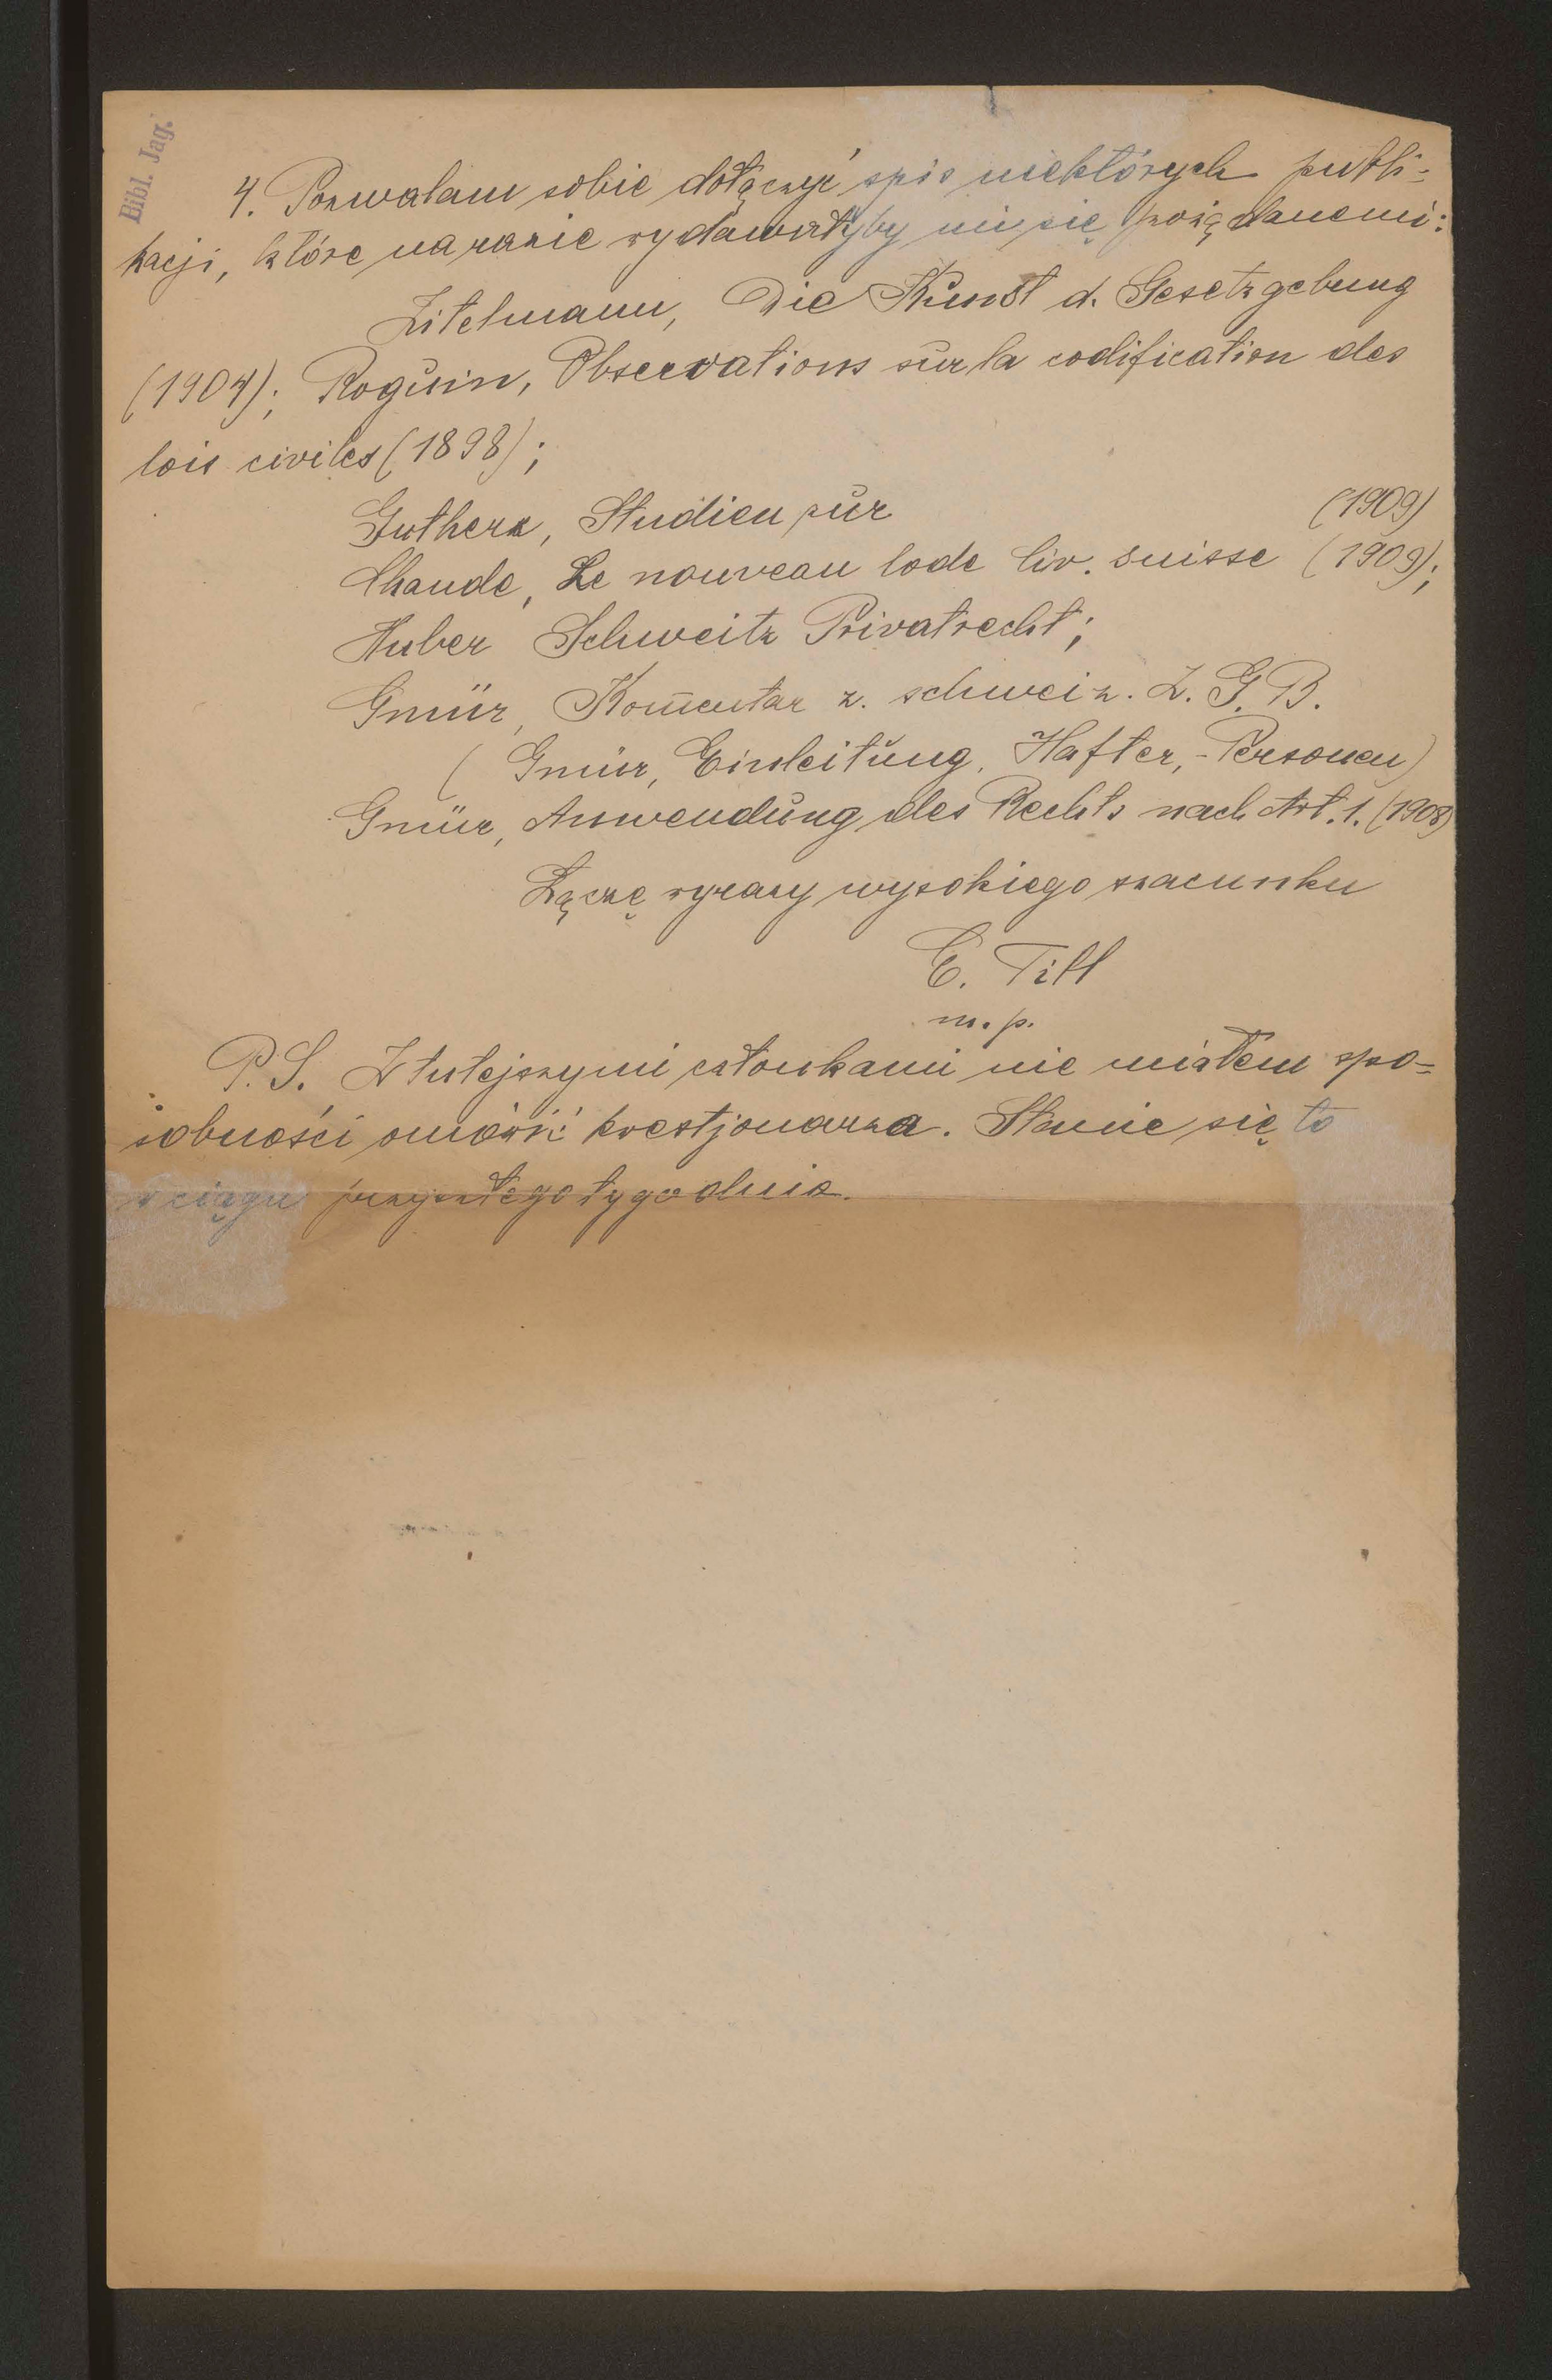 Bibl. Jag.
4. Pozwalam sobie dołączyć spis niektórych publi-
kacji, które na razie wydawałyby mi się pożądanemi:
Zitelmann, Die Kunst d. Gesetzgebung
(1904); Roguin, Observations sur la codification des
lois civiles (1898);
Gutherz, Studien zur (1909)
Chaude, Le nouveau Code Civ. suisse (1909);
Huber Schweitz Privatrecht;
Gmür, Kom̄entar z. schweiz. Z. G. B.
(Gmür, Einleitung, Hafter, - Personen)
Gmür, Anwendung des Rechts nach Art. 1. (1908)
Łączę wyrazy wysokiego szacunku
E. Till
m. p.
P. S. Z tutejszymi członkami nie miałem spo-
sobności omówić kwestjonarza. Stanie się to
w ciągu przyszłego tygodnia.